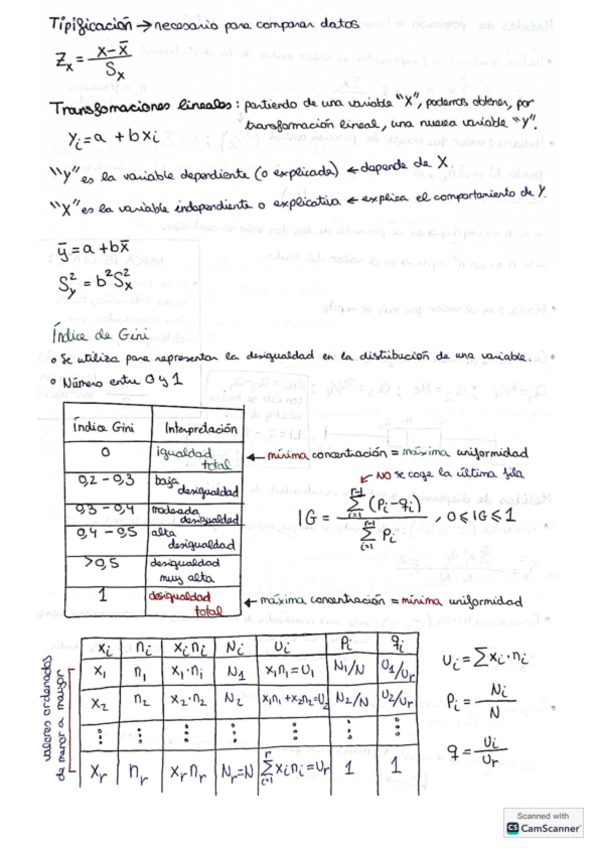 Tipificación → necesario para comparar datos
Zx = (x - x̄) / Sx
Transfomaciones lineales: partiendo de una variable "X", podemos obtener, por
transformación lineal, una nueva variable "y".
yi = a + bxi
"y" es la variable dependiente (o explicada) ← depende de X.
"X" es la variable independiente o explicativa ← explica el comportamiento de Y.
ȳ = a + bx̄
S²y = b²S²x
Índice de Gini
• Se utiliza para representar la desigualdad en la distribución de una variable.
• Número entre 0 y 1
Índice Gini | Interpretación
0 | igualdad total ← mínima concentración = máxima uniformidad
0,2 - 0,3 | baja desigualdad
0,3 - 0,4 | moderada desigualdad
0,4 - 0,5 | alta desigualdad
>0,5 | desigualdad muy alta
1 | desigualdad total ← máxima concentración = mínima uniformidad
NO se coge la última fila
IG = Σ(i=1, r-1) (Pi - qi) / Σ(i=1, r-1) Pi , 0 ≤ IG ≤ 1
valores ordenados de menor a mayor
xi | ni | xini | Ni | Ui | Pi | qi
x1 | n1 | x1·ni | N1 | x1n1 = U1 | N1/N | U1/Ur
x2 | n2 | x2·n2 | N2 | x1n1 + x2n2 = U2 | N2/N | U2/Ur
⋮ | ⋮ | ⋮ | ⋮ | ⋮ | ⋮ | ⋮
xr | nr | xrnr | Nr = N | Σ(i=1, r) xini = Ur | 1 | 1
Ui = Σ xi·ni
Pi = Ni / N
q = Ui / Ur
Scanned with
CS CamScanner